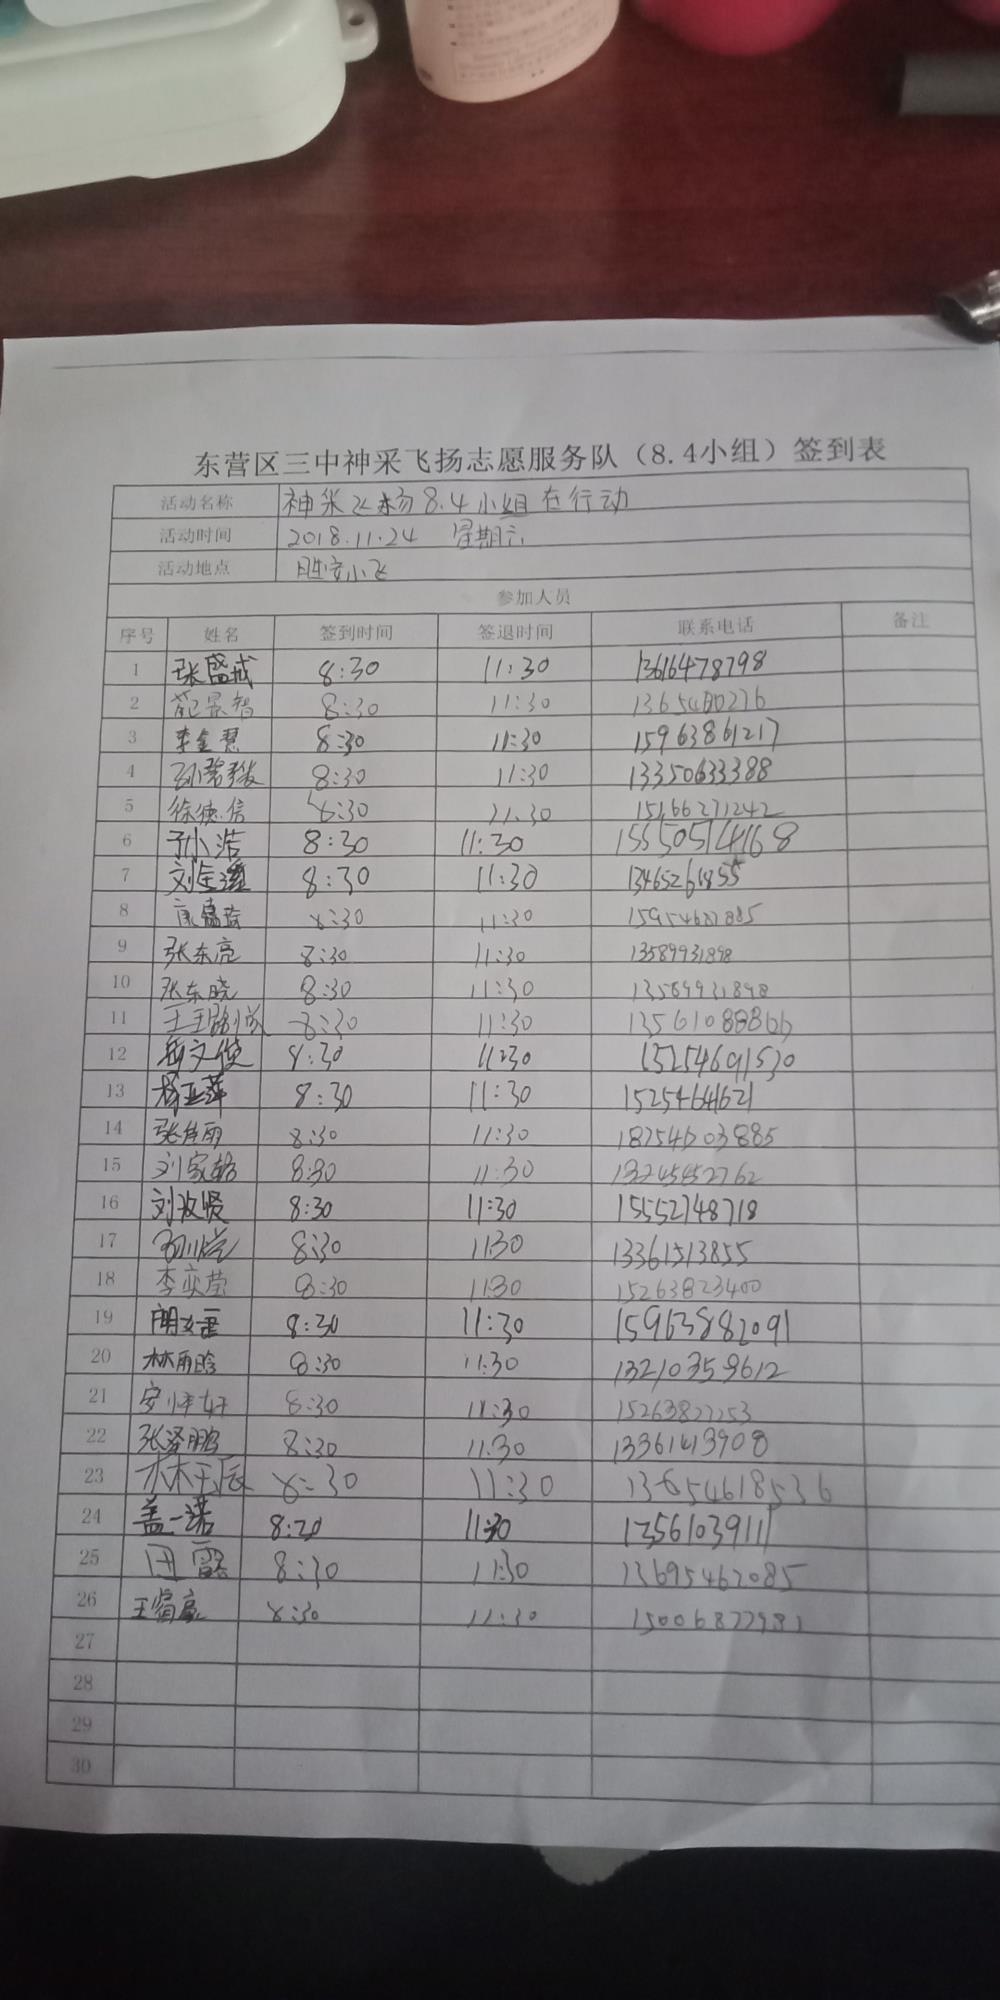 东营区三中神采飞扬志愿服务队（8.4小组）签到表
活动名称 神采飞扬8.4小组在行动
活动时间 2018.11.24 星期六
活动地点
参加人员
序号 姓名 签到时间 签退时间 联系电话 备注
1 张盛 8:30 11:30 13616478798
2 范景智 8:30 11:30
3 李金慧 8:30 11:30 15963861217
4 8:30 11:30 13350633388
5 徐德信 8:30 11:30 15166271242
6 于小浩 8:30 11:30 15550514168
7 刘 8:30 11:30
8 8:30 11:30
9 张东亮 8:30 11:30 13589931898
10 张东晓 8:30 11:30 13589931898
11 8:30 11:30
12 文俊 8:30 11:30 15254691530
13 杨亚萍 8:30 11:30 15254641621
14 张佳雨 8:30 11:30 18254603885
15 刘家 8:30 11:30
16 刘政贤 8:30 11:30 15552748718
17 8:30 11:30 13361513855
18 李奕莹 8:30 11:30 15263823400
19 8:30 11:30 15963882091
20 林雨晗 8:30 11:30 13210359612
21 安 轩 8:30 11:30
22 张泽鹏 8:30 11:30 13361413908
23 林玉辰 8:30 11:30 13654618536
24 盖一诺 8:30 11:30 13561039111
25 田露 8:30 11:30 13695462085
26 王 8:30 11:30
27
28
29
30